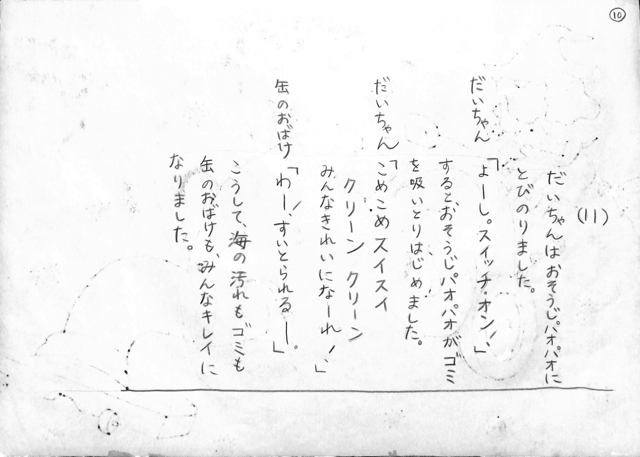 ⑩
(11)
だいちゃんはおそうじパオパオに
とびのりました。
だいちゃん「よーし。スイッチ・オン！」
するとおそうじパオパオがゴミ
を吸いとりはじめました。
だいちゃん「こめこめスイスイ
クリーン クリーン
みんなきれいになーれ！」
缶のおばけ「わー、すいとられるー。」
こうして、海の汚れもゴミも
缶のおばけも、みんなキレイに
なりました。